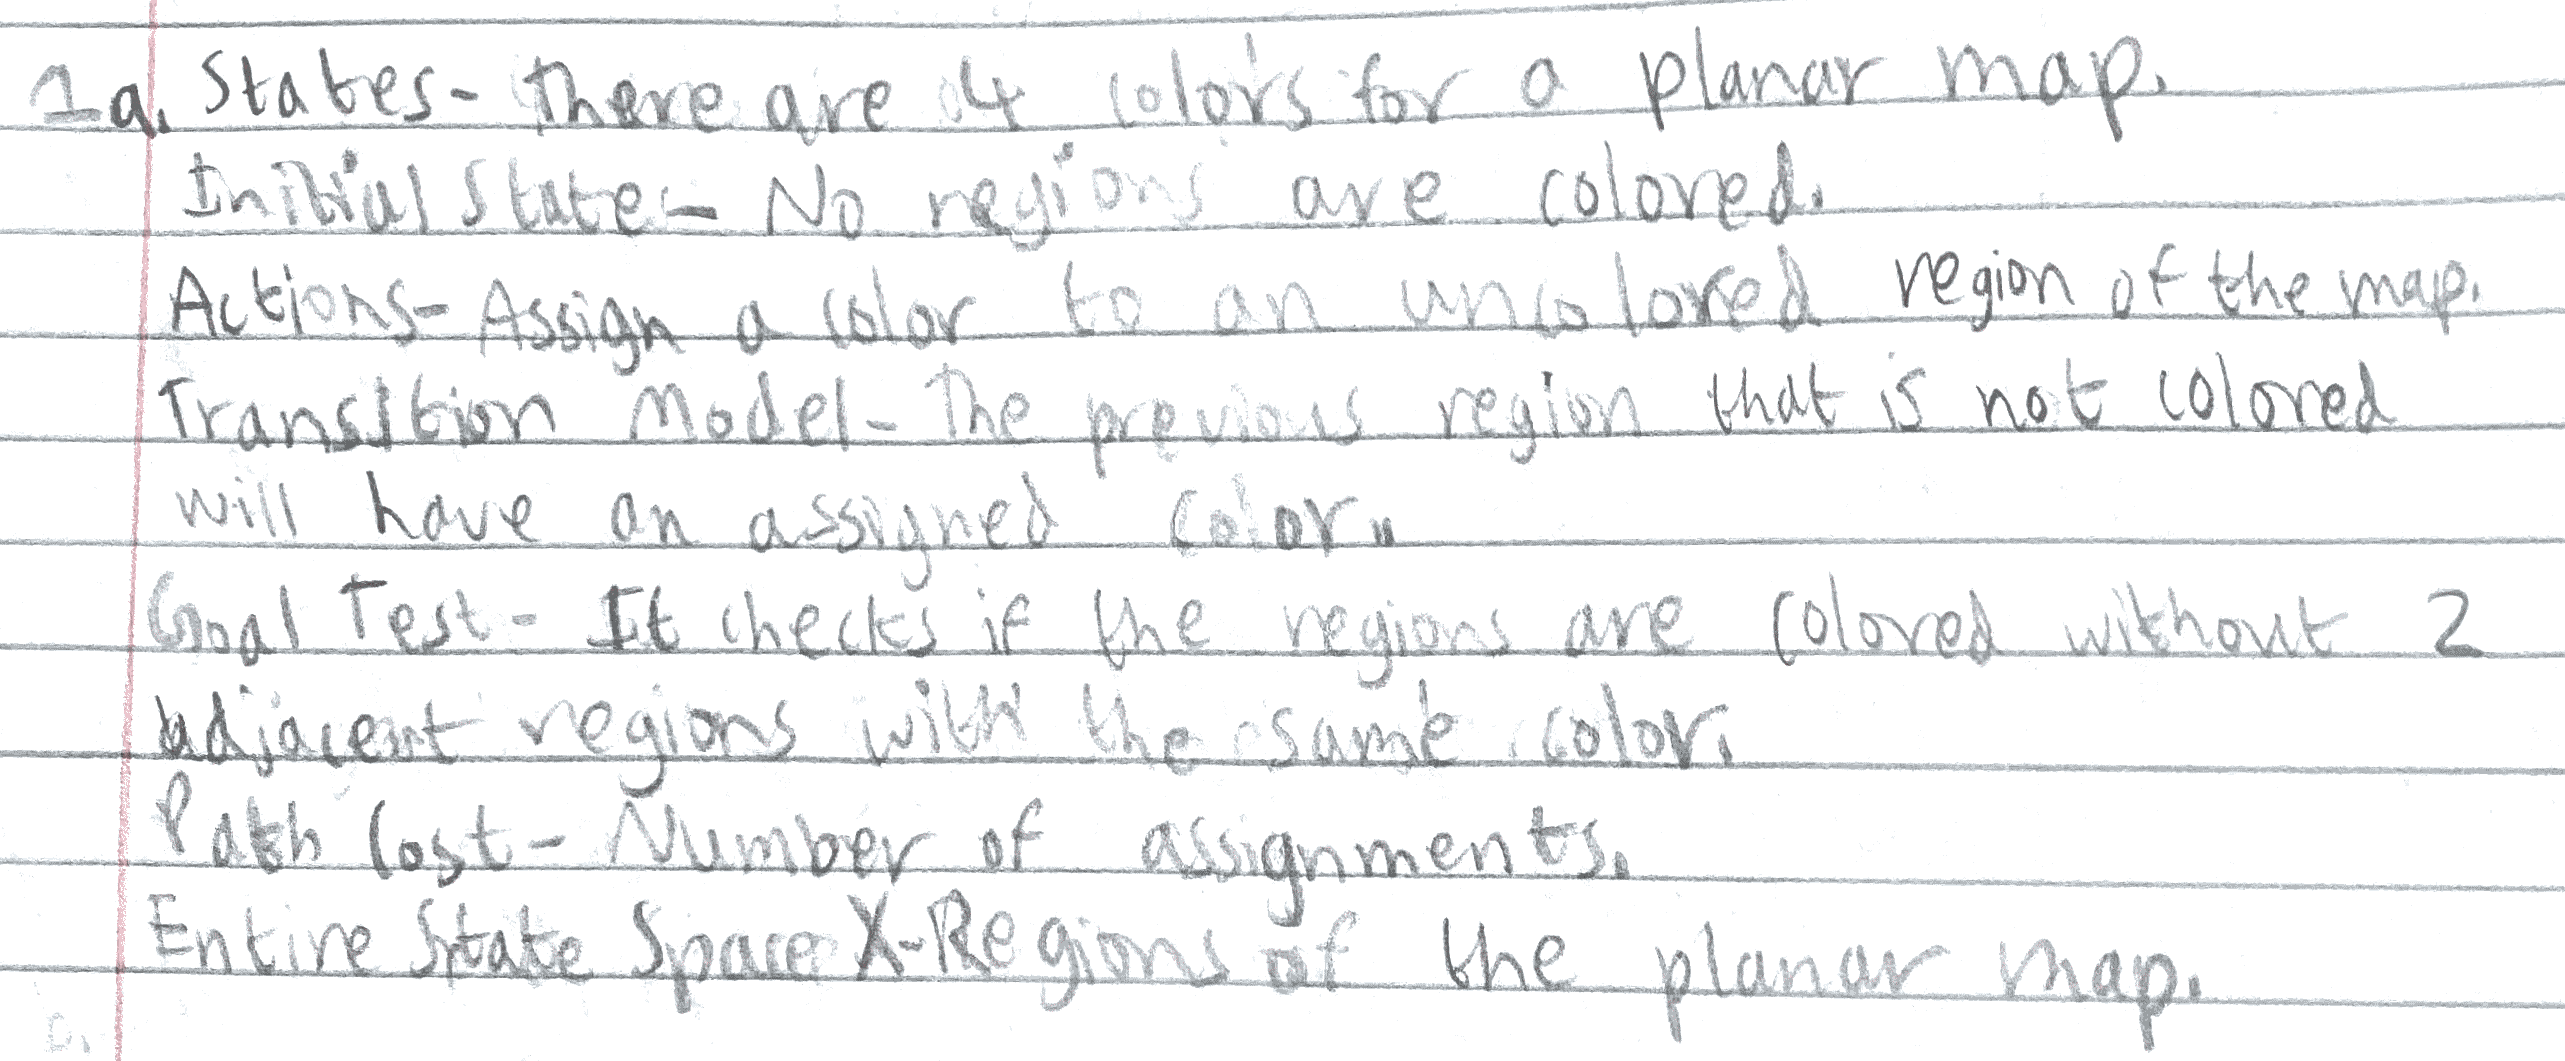 1a. States- There are 4 colors for a planar map.
Initial State- No regions are colored.
Actions- Assign a color to an uncolored region of the map.
Transition Model- The previous region that is not colored
will have an assigned color.
Goal Test- It checks if the regions are colored without 2
adjacent regions with the same color.
Path Cost- Number of assignments.
Entire State Space X-Regions of the planar map.